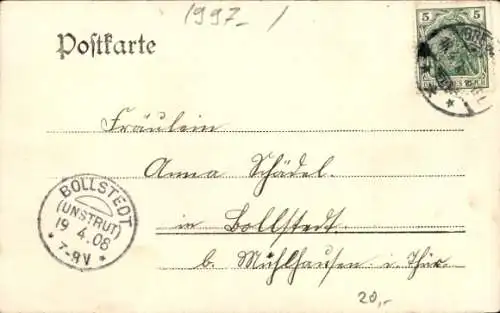 1997-/
Postkarte
5 5
Fräulein
Anna Schädel.
in Bollstedt
b. Mühlhausen i Thür.
BOLLSTEDT
(UNSTRUT)
19 4.08
* 7-8V *
20,-